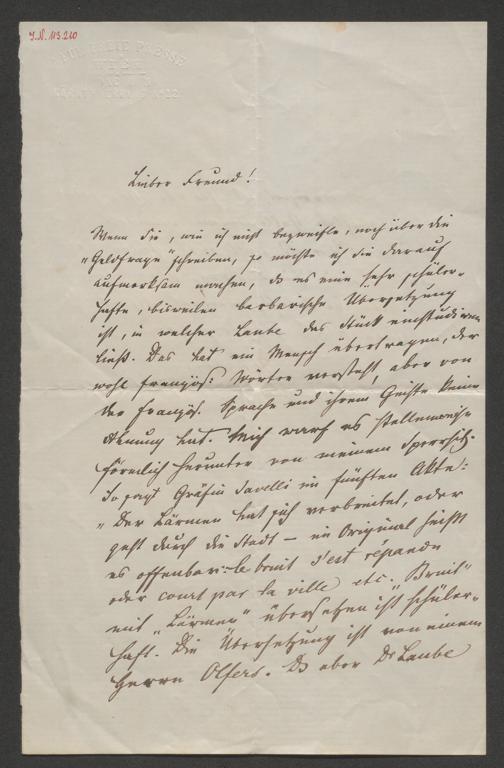 I.N. 113.210
NEUE FREIE PRESSE
WIEN
Lieber Freund!
Wenn Sie, wie ich nicht bezweifle, noch über die
„Geldfrage" schreiben, so möchte ich Sie darauf
aufmerksam machen, daß es eine sehr schüler-
hafte, bisweilen barbarische Übersetzung
ist, in welcher Laube das Stück einstudieren
ließ. Das hat ein Mensch übertragen, der
wohl französ: Wörter versteht, aber von
der französ. Sprache und ihrem Geiste keine
Ahnung hat. Mich warf es stellenweise
förmlich herunter von meinem Sperrsitz.
So sagt Gräfin Savelli im fünften Akte:
„Der Lärmen hat sich verbreitet, oder
geht durch die Stadt – im Original heißt
es offenbar: le bruit s'est répandu
oder court par la ville etc. „Bruit"
mit „Lärmen" übersetzen ist schüler-
haft. Die Übersetzung ist von einem
Herrn Olfers. Da aber Dr Laube